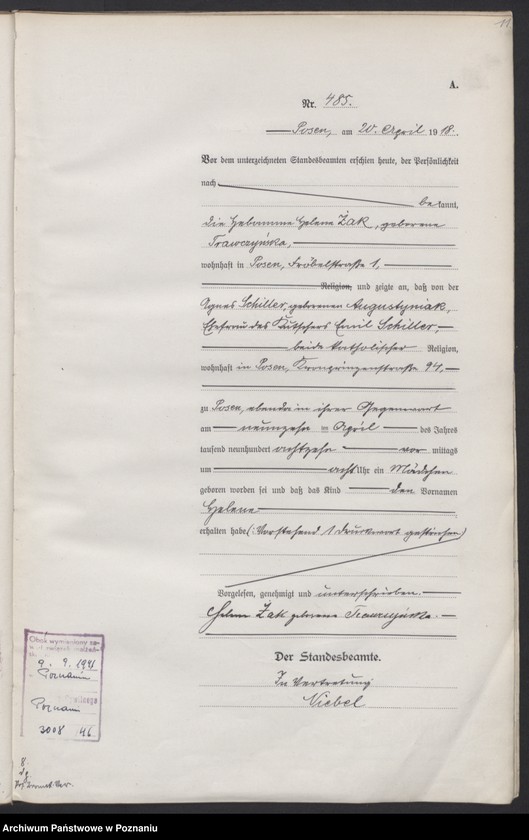 11
A.
Nr. 485.
Posen, am 20. April 1918.
Vor dem unterzeichneten Standesbeamten erschien heute, der Persönlichkeit
nach
bekannt,
die Hebamme Helene Żak, geborene
Trawczyńska,
wohnhaft in Posen, Fröbelstraße 1,
Religion, und zeigte an, daß von der
Agnes Schiller, geborenen Augustyniak,
Ehefrau des Kutschers Emil Schiller,
beide katholischer Religion,
wohnhaft in Posen, Kronprinzenstraße 94,
zu Posen, ebenda in ihrer Gegenwart
am neunzehn ten April des Jahres
tausend neunhundert achtzehn vor mittags
um acht Uhr ein Mädchen
geboren worden sei und daß das Kind den Vornamen
Helene
erhalten habe (: Vorstehend 1 Druckwort gestrichen)
Vorgelesen, genehmigt und unterschrieben.
Helene Żak geborene Trawczyńska.
Der Standesbeamte.
In Vertretung
Niebel
Obok wymieniony
9. 9. 1941
Poznaniu
Poznań
3008 46
Archiwum Państwowe w Poznaniu